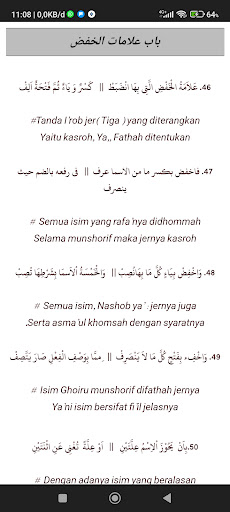 11:08 | 0,0KB/d
4G+
64%
باب علامات الخفض
46. عَلاَمَةُ الْخَفْضِ الَّتِي بِهَا انْضَبَطْ || كَسْرٌ وَ يَاءٌ ثُمَّ فَتْحَةٌ اَلِفْ
# Tanda I'rob jer ( Tiga ) yang diterangkan
Yaitu kasroh, Ya,, Fathah ditentukan
47. فاخفض بكسر ما من الاسما عرف || فى رفعه بالضم حيث
ينصرف
# Semua isim yang rafa'nya didhommah
Selama munshorif maka jernya kasroh
48. وَاخْفِضْ بِيَاءٍ كُلَّ مَا بِهَانُصِبْ || وَالْخَمْسَةُ الْاَسمَا بِشَرْطِهَا تُصِبْ
# Semua isim, Nashob ya`: jernya juga
.Serta asma`ul khomsah dengan syaratnya
49. وَاخْفِء بِفَتْحٍ كُلَّ مَا لاَ يَنْصَرِفْ || مِمَّا بِوَصْفِ الْفِعْلِ صَارَ يَتَّصِفْ
# Isim Ghoiru munshorif difathah jernya
Ya`ni isim bersifat fi`il jelasnya
50. بِاَنْ يَحُوْزَ اْلاِسْمُ عِلَّتَيْنِ || اَوْ عِلَّةً تُغْنِى عَنِ اثْنَتَيْنِ
# Dengan adanya isim yang beralasan